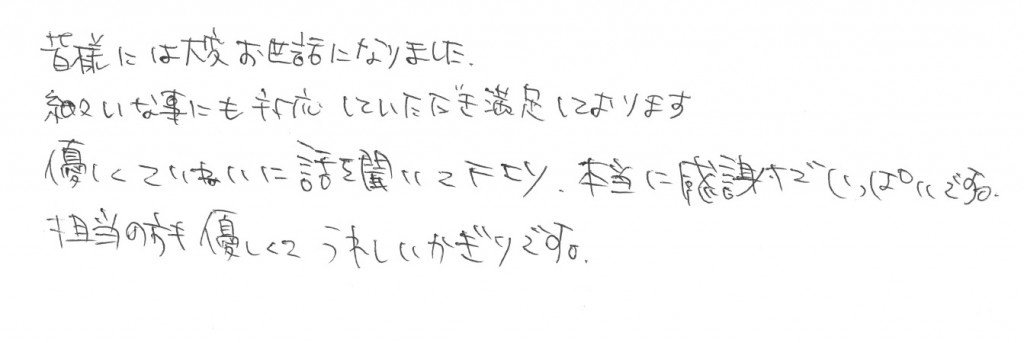 皆様には大変お世話になりました.
細々いな事にも対応していただき満足しております
優しくていねいに話を聞いて下さり、本当に感謝でいっぱいです。
担当の方も優しくてうれしいかぎりです。